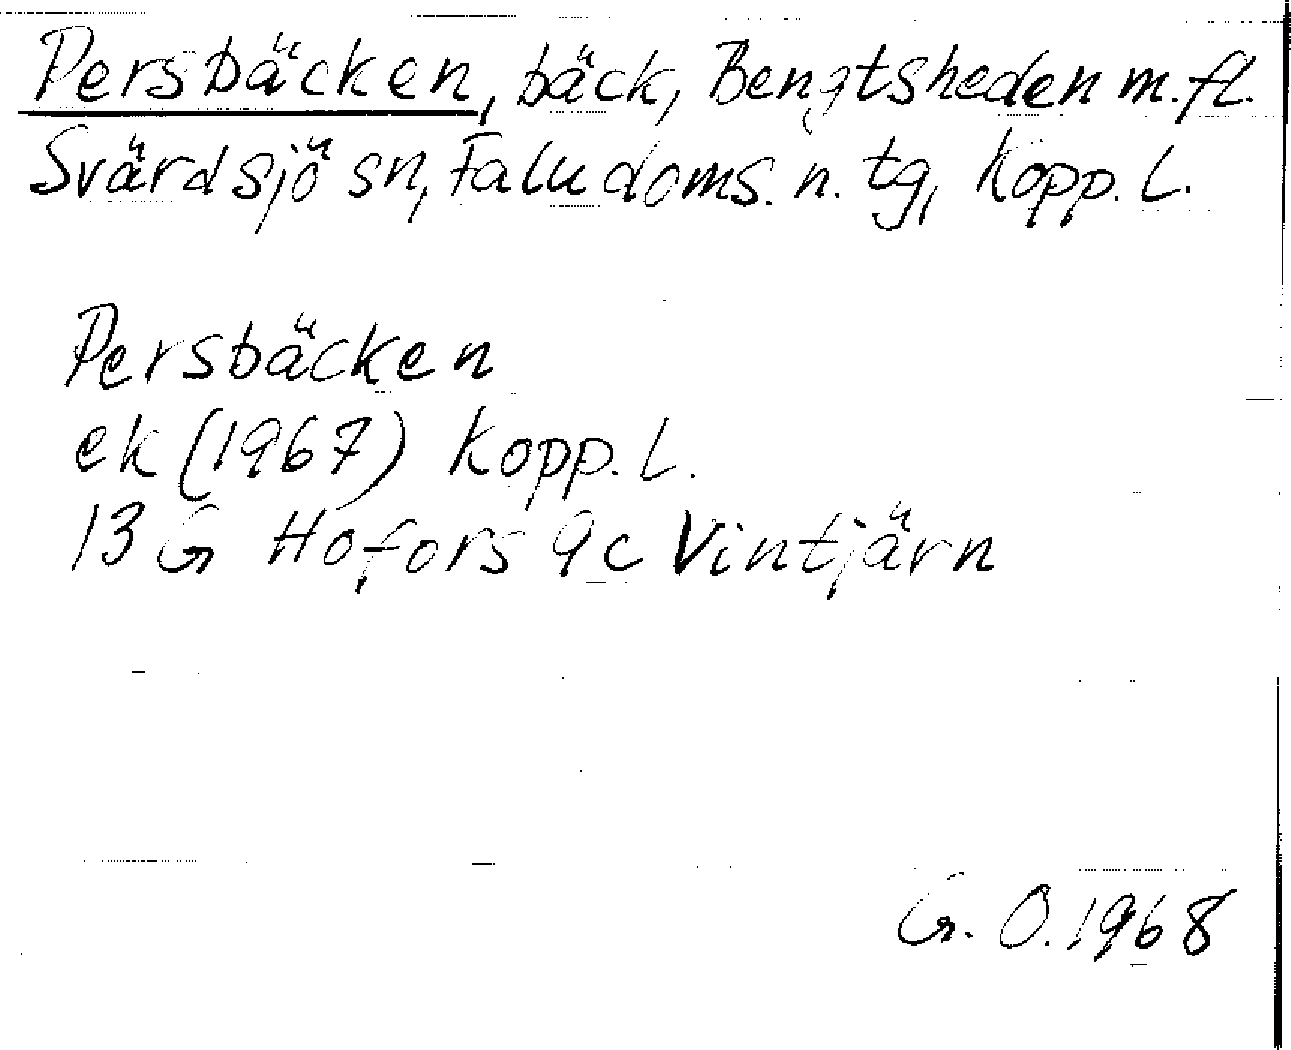 Persbäcken, bäck, Bengtsheden m.fl.
Svärdsjö sn, Falu doms. n. tg, Kopp. L.
Persbäcken
ek (1967) Kopp. L.
13 G Hofors 9c Vintjärn
G. O. 1968